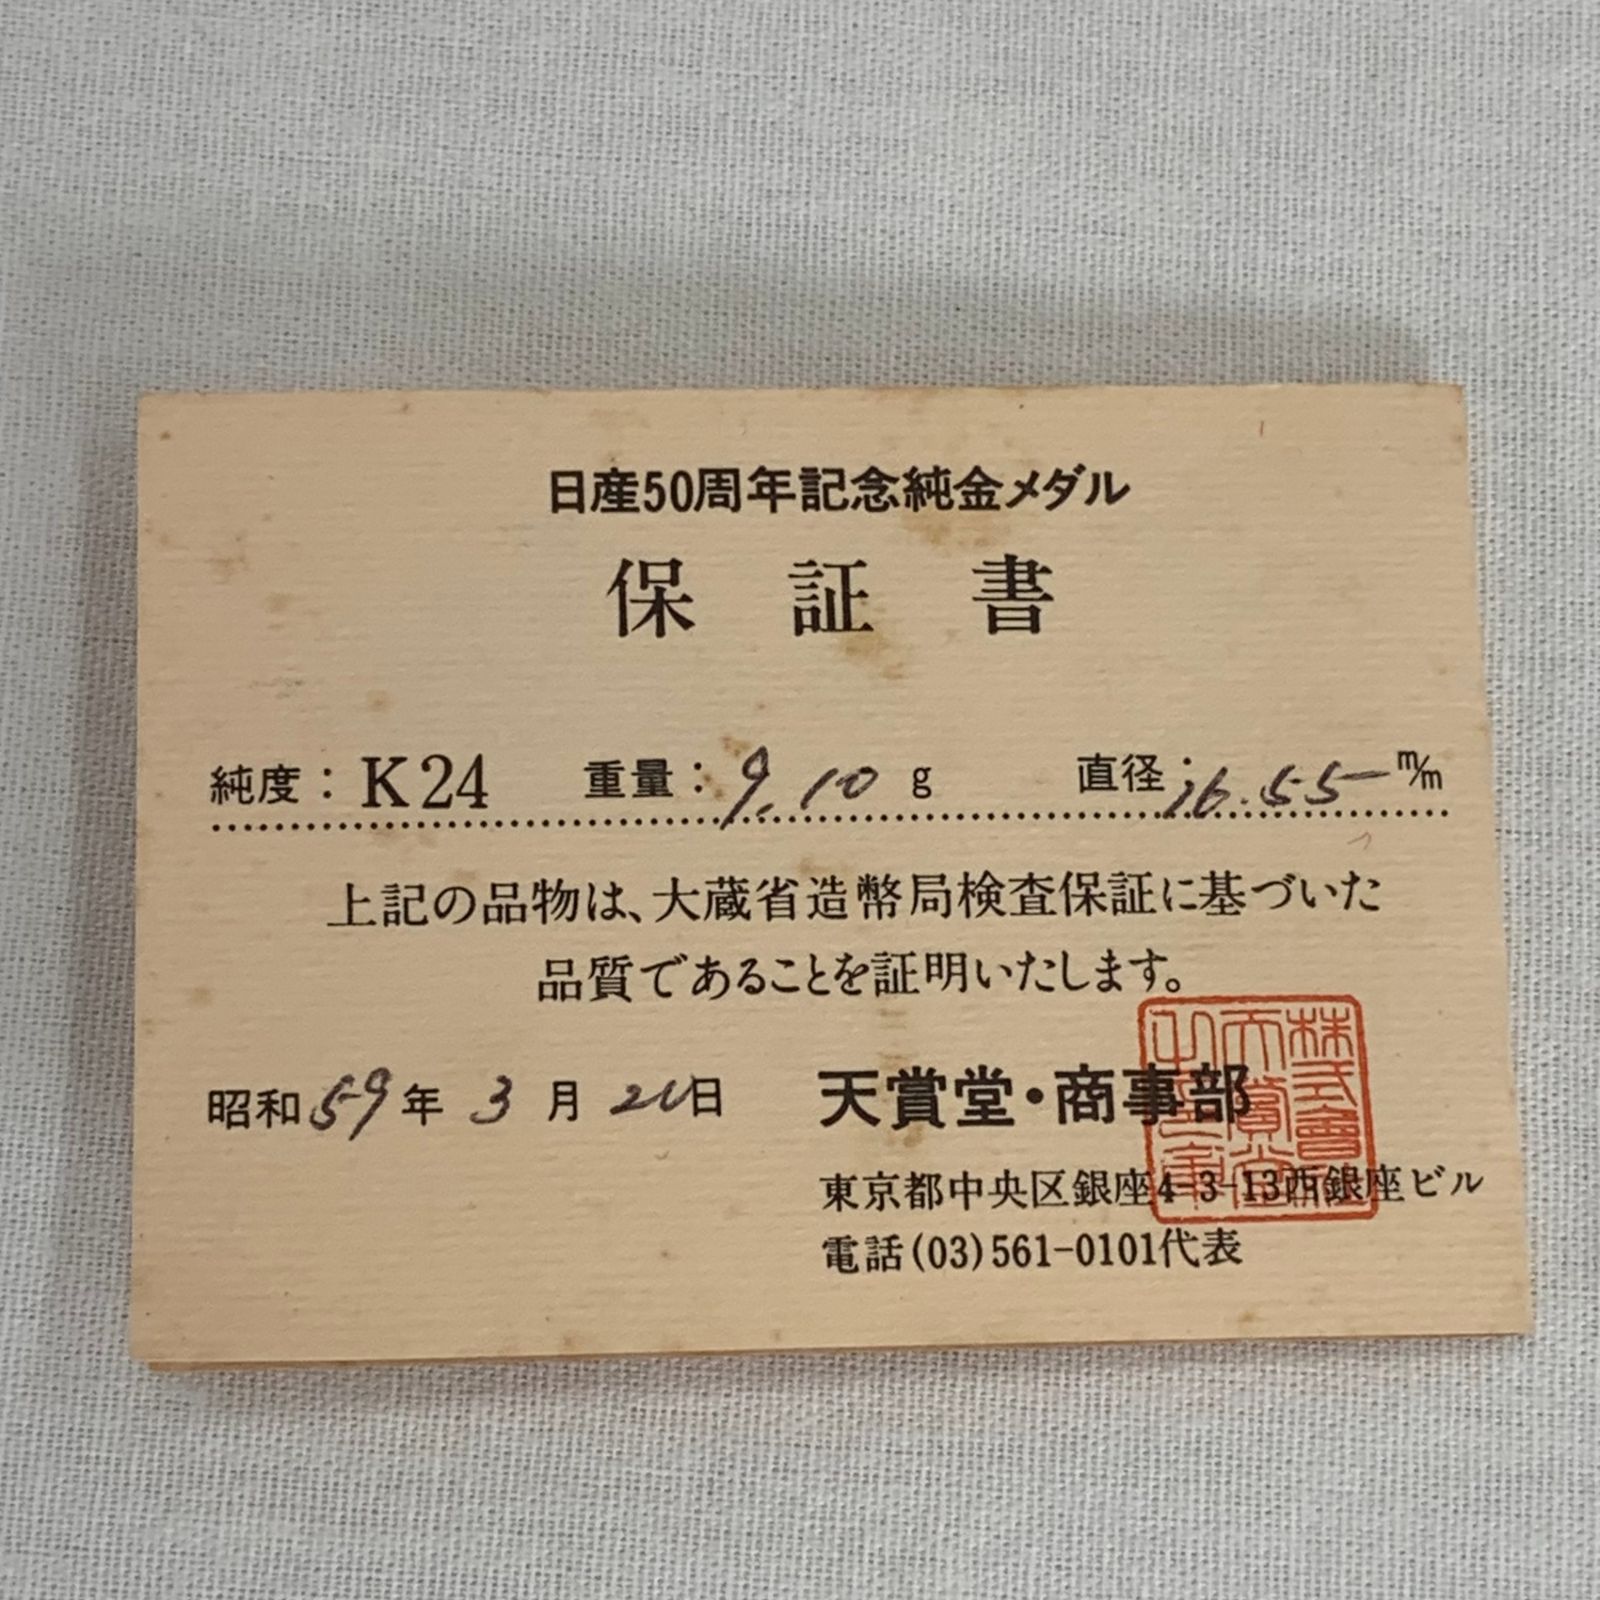 日産50周年記念純金メダル
保証書
純度：K24 重量：9.10 g 直径：16.55 m/m
上記の品物は、大蔵省造幣局検査保証に基づいた
品質であることを証明いたします。
昭和59年3月 日
天賞堂・商事部
東京都中央区銀座4-3-13西銀座ビル
電話(03)561-0101代表
株式會社天賞堂